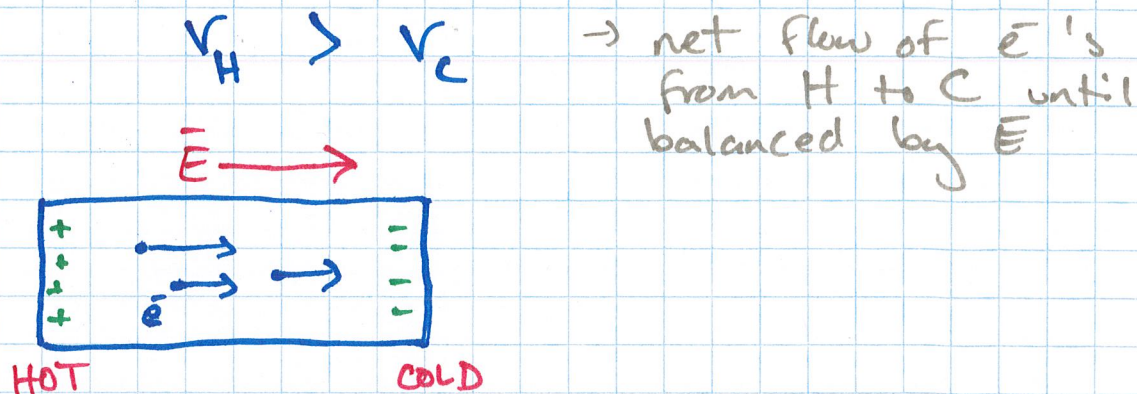 v_H > v_C → net flow of ē's
from H to C until
balanced by Ē
Ē →
+ −
+ −
+ −
+ −
ē
HOT COLD